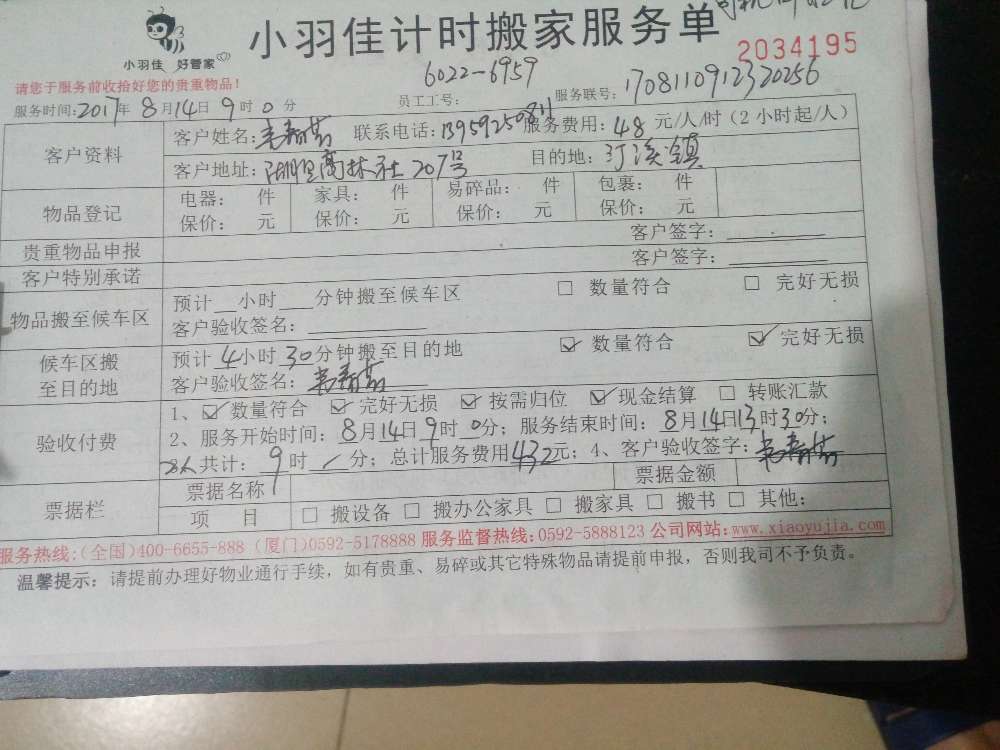 小羽佳 好管家
小羽佳计时搬家服务单
2034195
请您于服务前收拾好您的贵重物品!
6022-6959
服务时间:2017年 8月14日 9时 0分 员工工号: 服务联号: 1708110912320256
客户资料
客户姓名: 联系电话:13959250811 服务费用: 48 元/人/时(2小时起/人)
客户地址: 高林社 207号 目的地: 汀溪镇
物品登记
电器: 件 家具: 件 易碎品: 件 包裹: 件
保价: 元 保价: 元 保价: 元 保价: 元
贵重物品申报 客户签字:
客户特别承诺 客户签字:
物品搬至候车区
预计__小时___分钟搬至候车区 □ 数量符合 □ 完好无损
客户验收签名:
候车区搬至目的地
预计4小时30分钟搬至目的地 ☑ 数量符合 ☑ 完好无损
客户验收签名:
验收付费
1、☑ 数量符合 ☑ 完好无损 ☑ 按需归位 ☑ 现金结算 □ 转账汇款
2、服务开始时间: 8月14日9时0分; 服务结束时间: 8月14日13时30分;
2人共计: 9时/分; 总计服务费用432元; 4、客户验收签字:
票据栏
票据名称 票据金额
项 目 □ 搬设备 □ 搬办公家具 □ 搬家具 □ 搬书 □ 其他:
服务热线:(全国)400-6655-888 (厦门)0592-5178888 服务监督热线:0592-5888123 公司网站:www.xiaoyujia.com
温馨提示: 请提前办理好物业通行手续,如有贵重、易碎或其它特殊物品请提前申报,否则我司不予负责。